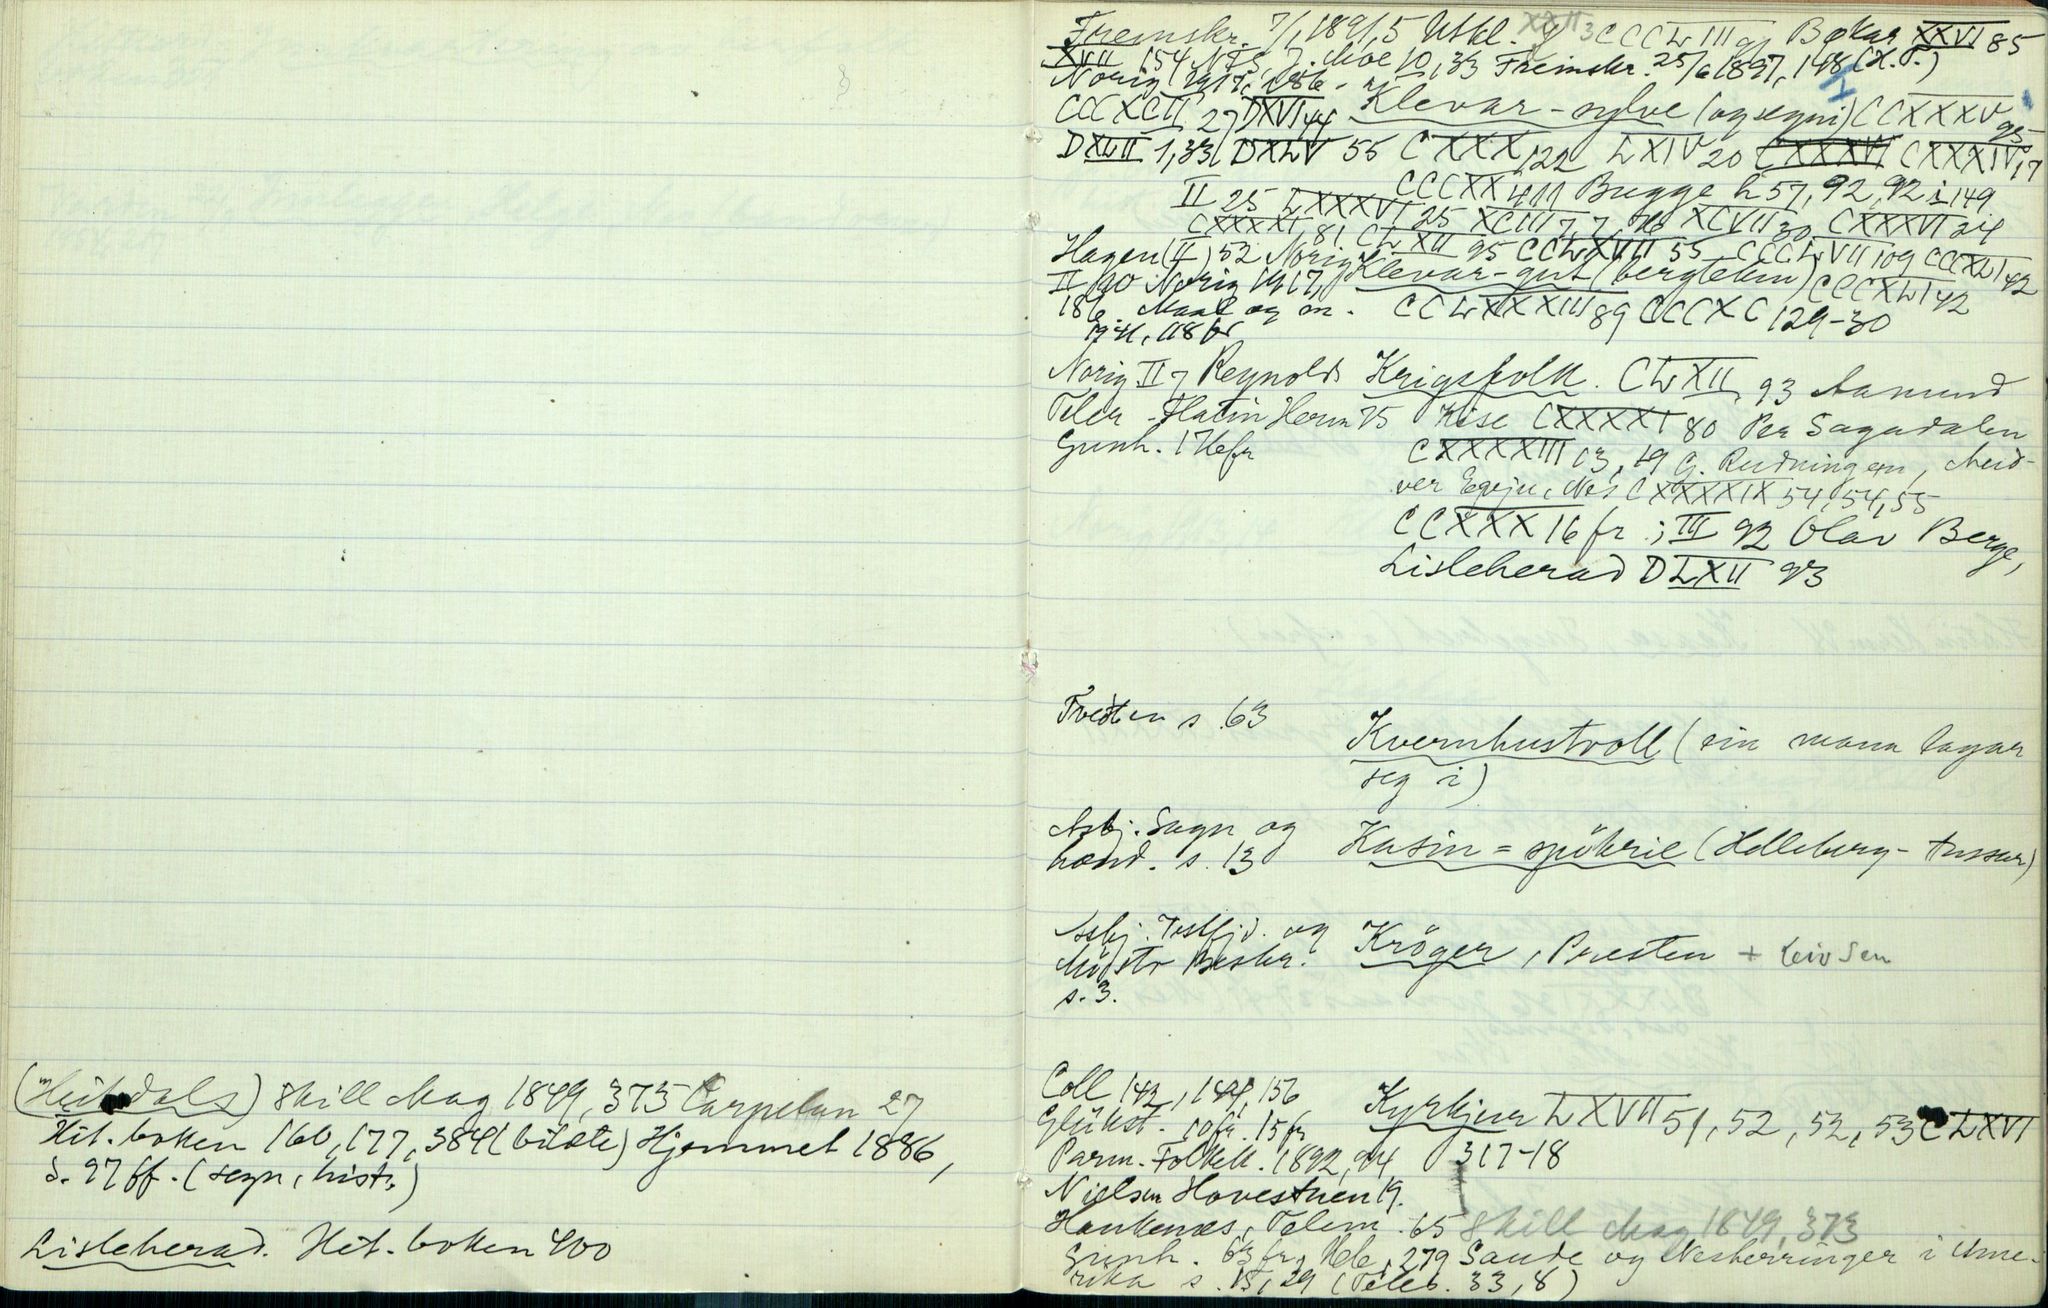 (Heitdals) Skill Mag 1849, 373 Carpelan 27
Hit. boken 160, 177, 384 (bilete) Hjemmet 1886,
s. 97 ff. (segn, hist.)
Lisleherad. Hit. boken 400
Fremskr. 7/1 1891,5 CCCLIII Bøkar XXVI 85
XVII 154 NFS, J. Moe 10, 33 Fremskr. 25/6 1897, 148 (X. T.)
Norig 1917, 186
CCCXCII 27 DXVI 44 Klevar-sylve (og segni) CCXXXV 95
DXLII 1,33 DXLV 55 CXXX 122 LXIV 20 CXXXVI CXXXIV 17
II 25 LXXXVI 25 CCCXX 411 Bugge h 57, 92, 92 i 149
CXXXXI 81 XCIII 7,7, XCVII 30 CXXXVI 24
Hagen (II) 52 Norig CLXII 95 CCLXVII 55 CCCLVII 109 CCCXLI 42
II 90 Norig 1917, Klevar-gut (bergteken) CCCXLI 42
186. Maal og m. CCLXXXXIII 89 CCCXC 129-30
1941, 118 fr
Norig II 7 Reynolds Krigsfolk. CLXII 93 Aamund
Telem. Flatin Herm 75 Kise CXXXXI 80 Per Sagadalen
Gunh. 176 fr CXXXXIII 13, 19 G. Rudningen,
CXXXXIX 54, 54, 55
CCXXX 16 fr.; III 92 Olav Berge,
Lisleherad DLXII 93
Tveiten s. 63
Kvernhustroll (ein mann lagar
seg i)
Asbj. Sagn og
s. 13 Kasin=spökrie (Helleberg-tussar)
Asbj. Vestfjd. og
Møstr Beskr. Kröger, Presten + Leivsen
s. 3.
Coll 142, 144, 156
Glükst. 10 fr. 15 fr Kyrkjur LXVII 51, 52, 52, 53 CLXVI
Parm. Folkek. 1892, 94 317-18
Nielsen Hovestuen 19.
Haukenæs, Telem. 65 Skill Mag 1849, 373
Gunh. 63 fr, 279 Saude og Nesherringer i Ame-
rika s. 15, 29 (Teleb. 33, 8)